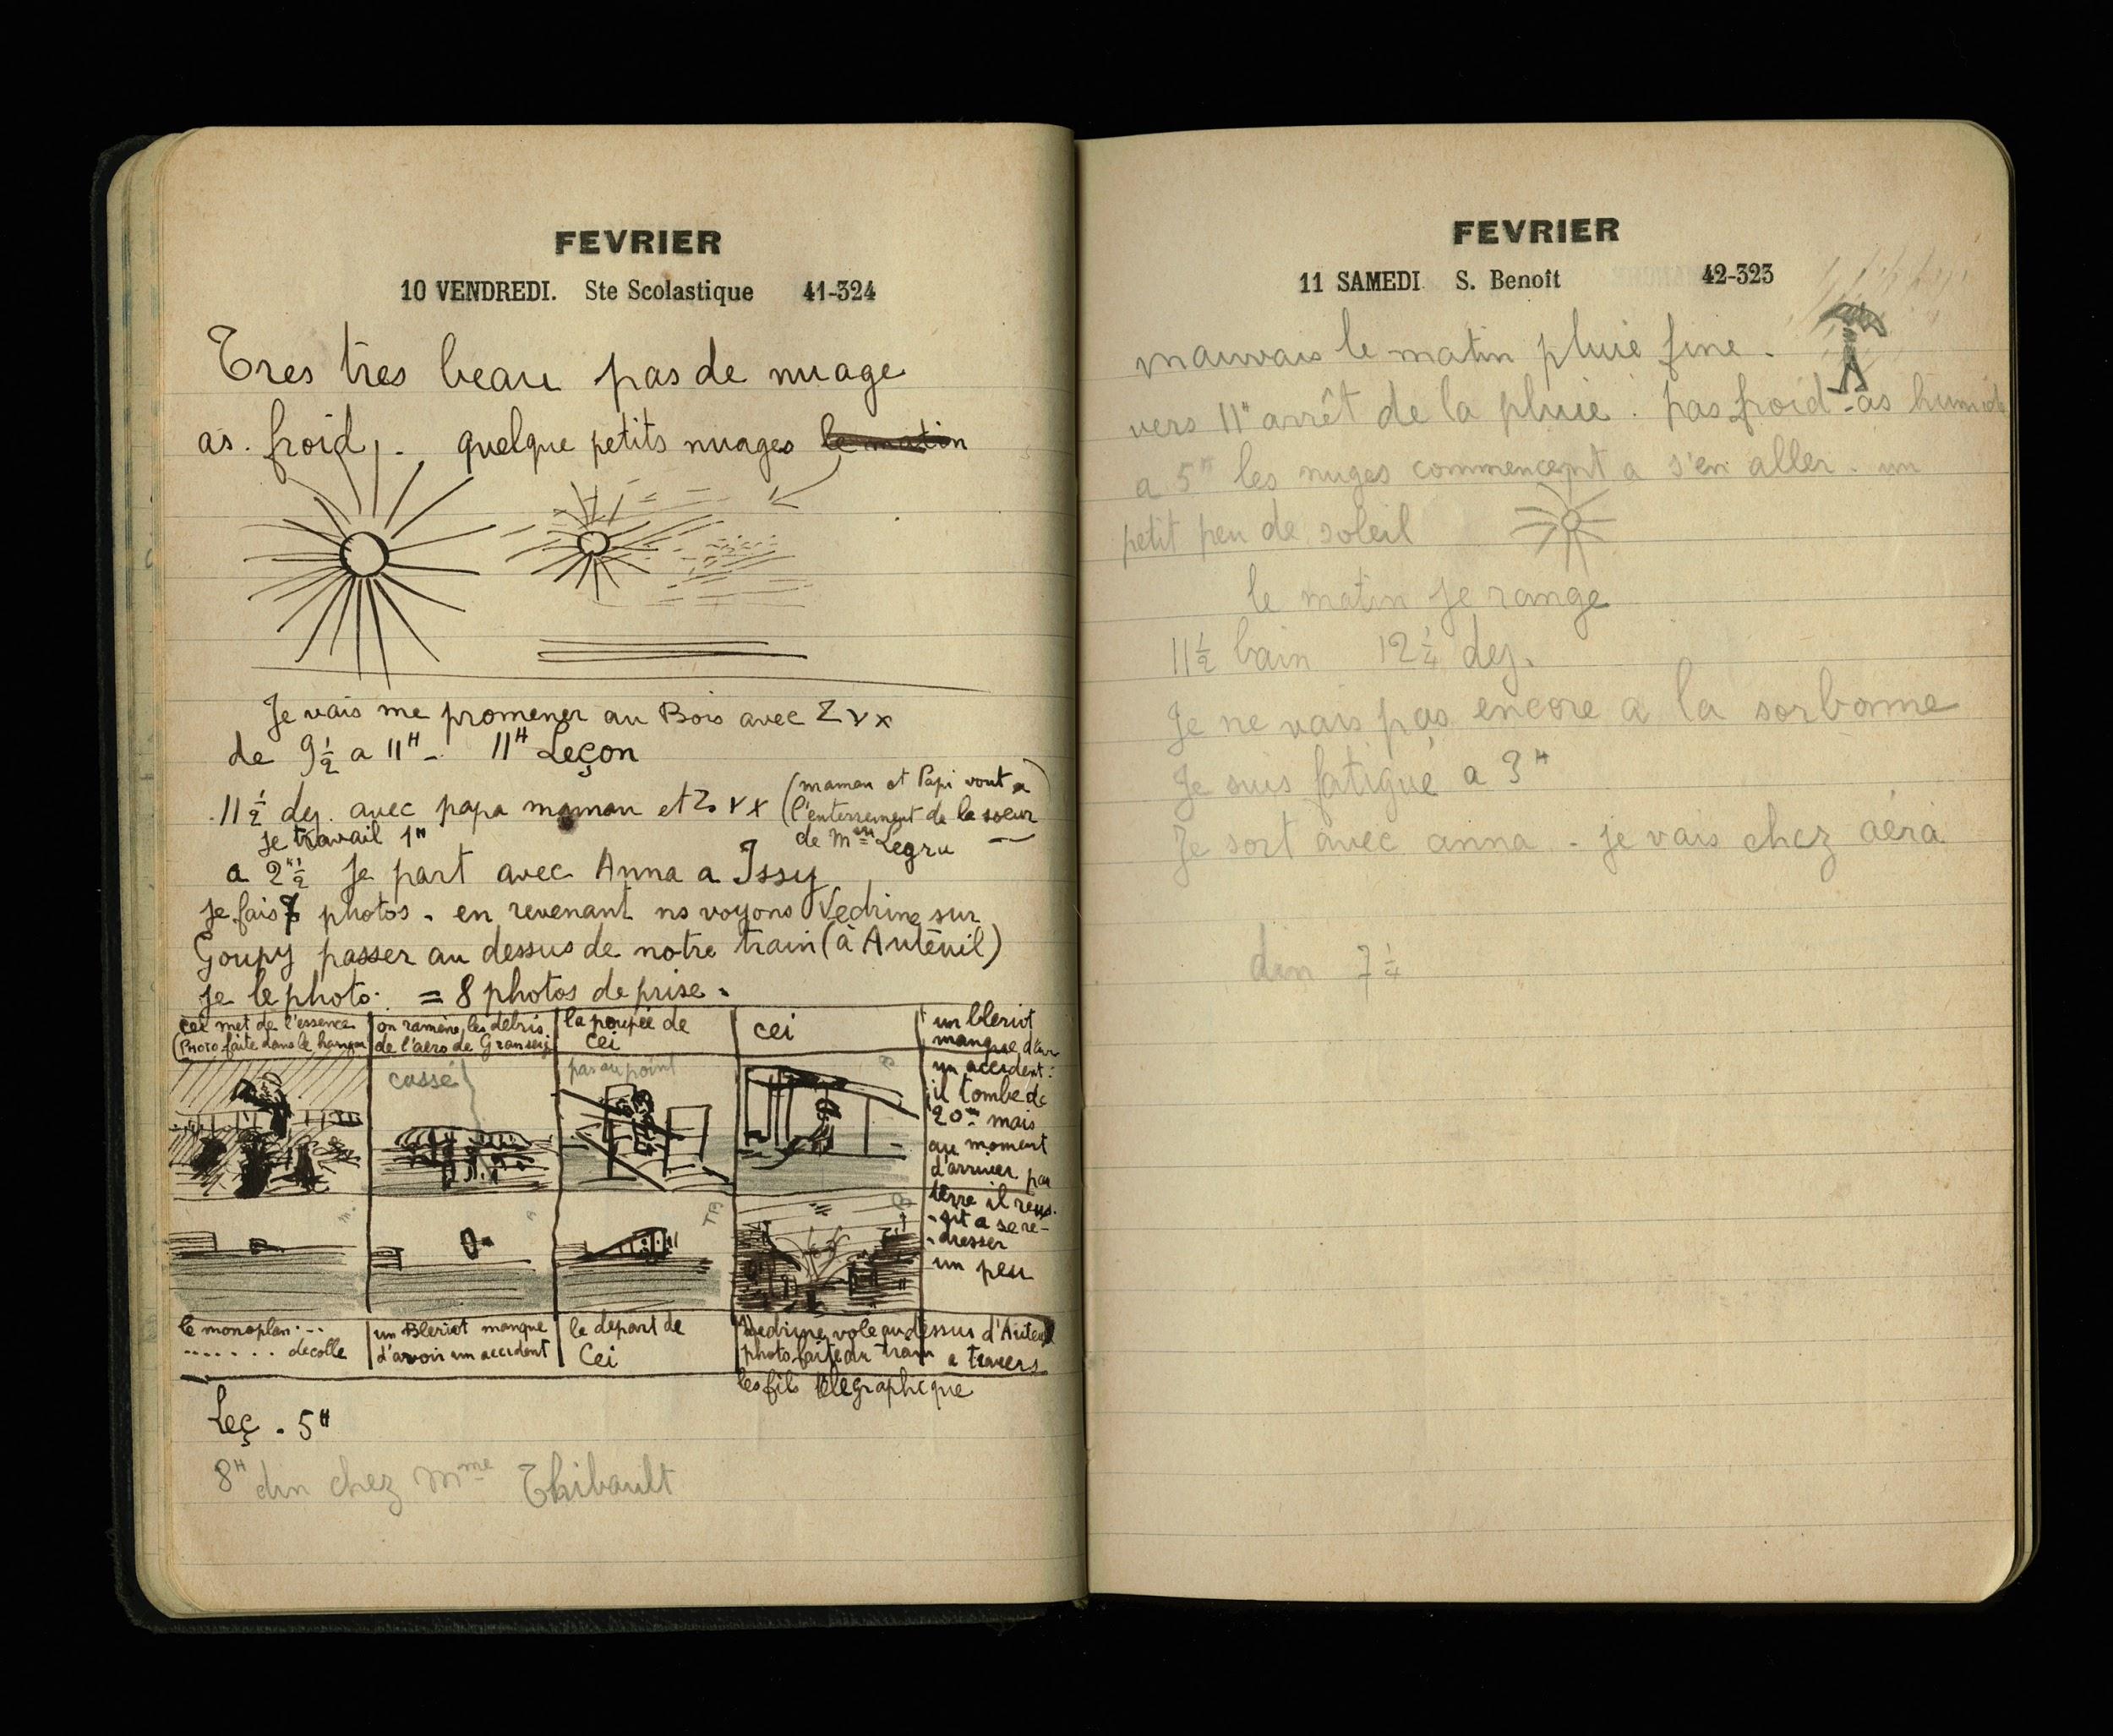 FEVRIER
10 VENDREDI. Ste Scolastique 41-324
Tres tres beau pas de nuage
as. froid, . quelque petits nuages le matin
Je vais me promener au Bois avec Z Y X
de 9 1/2 a 11H - 11H Leçon
11 1/2 dej. avec papa maman et Z Y X (maman et Papi vont a
l'enterrement de la soeur
de Mme Legru
je travail 1H
a 2H 1/2 je part avec Anna a Issy
je fais 7 photos. en revenant ns voyons Vedrine sur
Goupy passer au dessus de notre train (à Auteuil)
je le photo. = 8 photos de prise.
cei met de l'essence
(Photo faite dans le hangar
on ramène les debris
de l'aero de
la poupée de
cei
cei
un bleriot
manque d'av
un accident:
il tombe de
20m mais
au moment
d'arriver par
terre il reus-
-sit a se re-
-dresser
un peu
cassé
pas au point
B
m.
TB
B
le monoplan...
....... decolle
un Bleriot manque
d'avoir un accident
le depart de
Cei
Vedrine vole au dessus d'Auteuil
photo faite du train a travers
les fils telegraphique
Leç. 5H
8H din chez Mme Thibault
FEVRIER
11 SAMEDI S. Benoît 42-323
mauvais le matin pluie fine.
vers 11H arrêt de la pluie. pas froid - as humide
a 5H les nuges commencent a s'en aller. un
petit peu de soleil
le matin je range
11 1/2 bain 12 1/4 dej.
Je ne vais pas encore a la sorbonne
Je suis fatigué a 3H
Je sort avec anna - je vais chez aéra
din 7 1/4